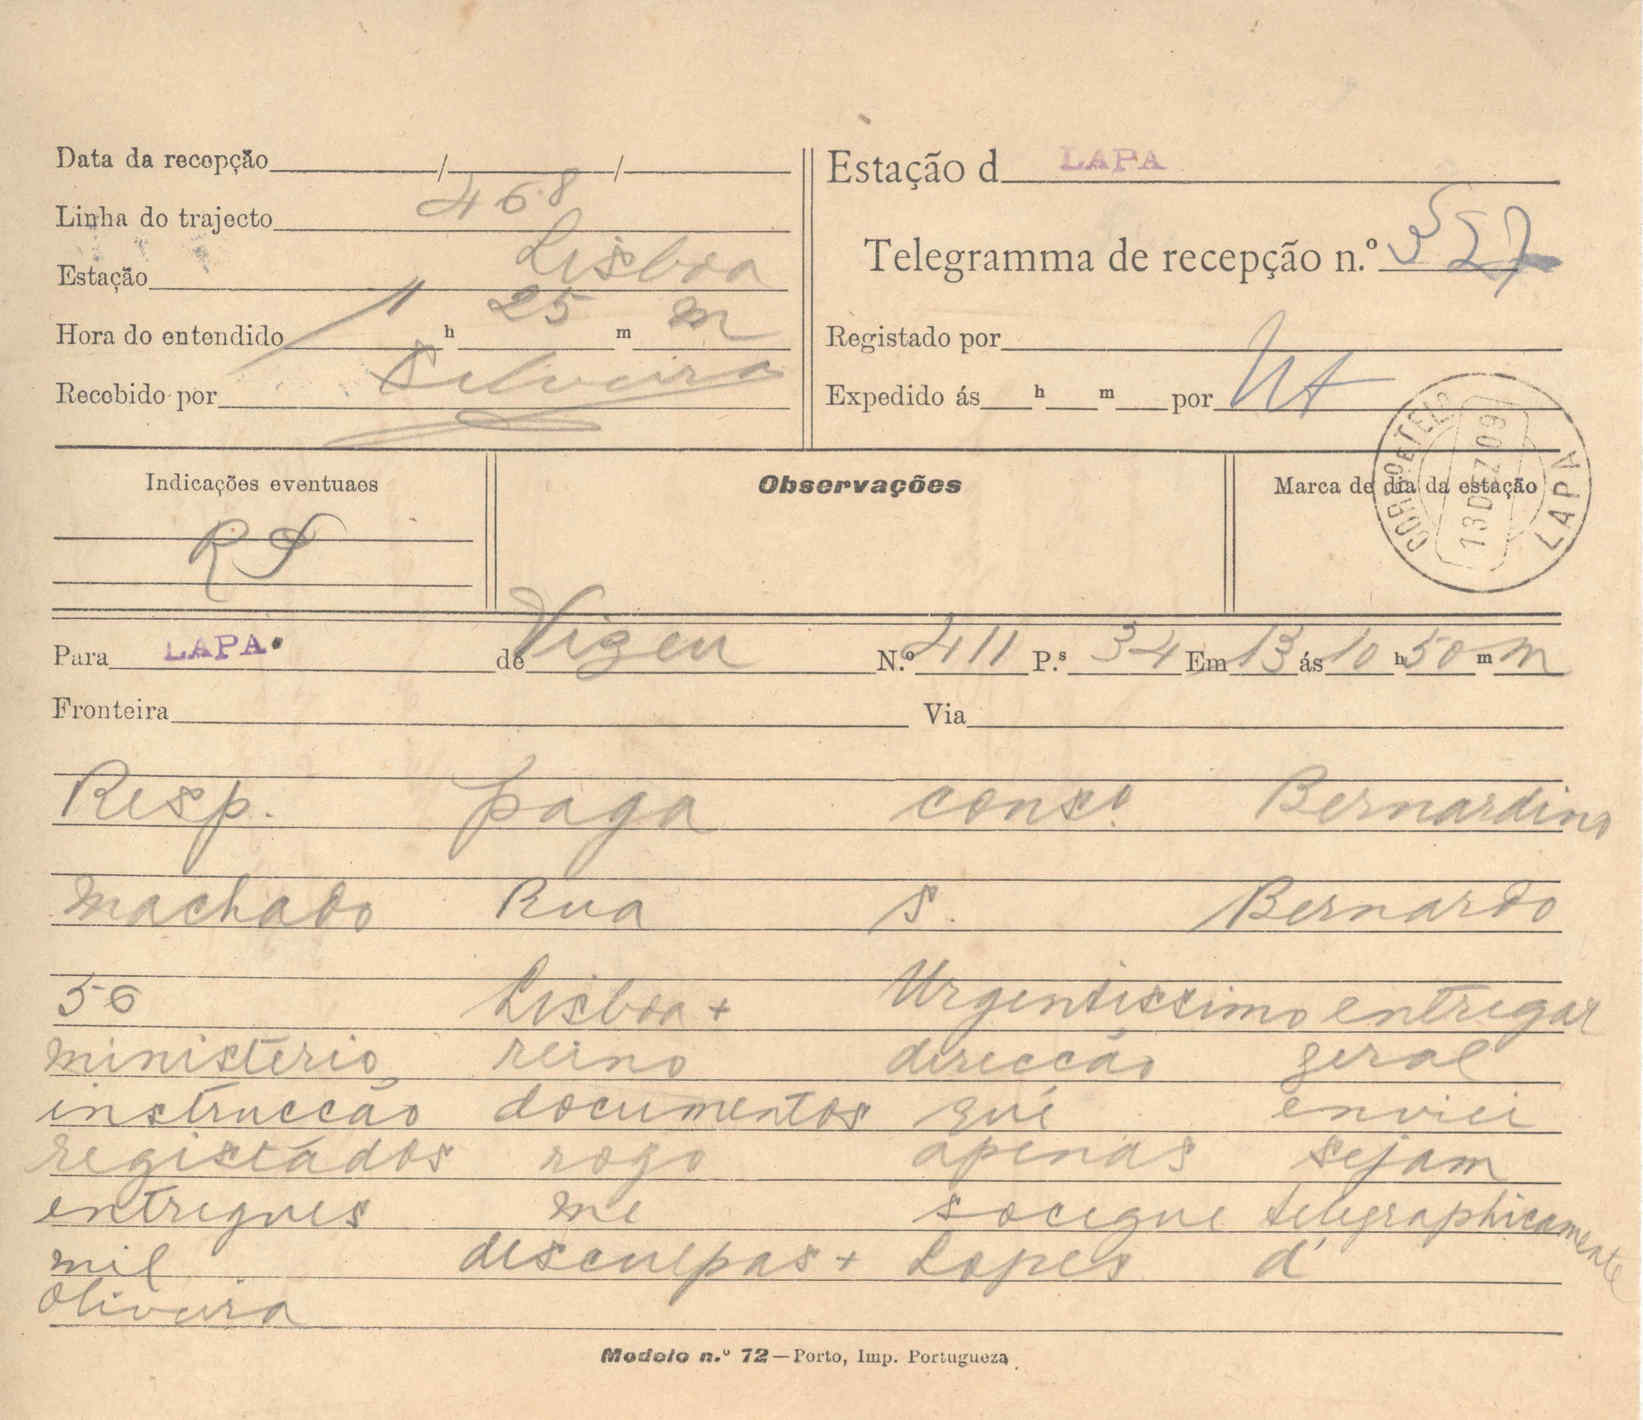 Data da recepção / /
Linha do trajecto 468
Estação Lisboa
Hora do entendido 11 h 25 m m
Recebido por Silveira
Estação d LAPA
Telegramma de recepção n.º 527
Registado por
Expedido ás h m por
CORREO E TEL. 13 DEZ 09 LAPA
Indicações eventuaes
Observações
Marca de dia da estação
Para LAPA. de Vizeu N.º 411 P.s 34 Em 13 ás 10 h 50 m m
Fronteira Via
Resp. paga cons.º Bernardino
Machado Rua S. Bernardo
56 Lisboa + Urgentissimo entregar
ministerio reino direccão geral
instruccão documentos que enviei
registados rogo apenas sejam
entregues me socegue telegraphicamente
mil desculpas + Lopes d'
Oliveira
Modelo n.º 72—Porto, Imp. Portugueza